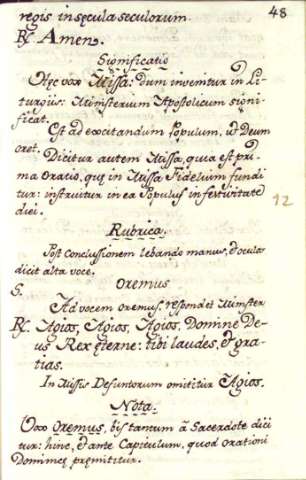 48
regis in sęcula seculorum.
℟ Amen.
Significatio
Hęc vox Missa: dum invenitur in Li-
turgiis: Ministerium Apostolicum signi-
ficat.
Est ad excitandum Populum, ut Deum
oret.
Dicitur autem Missa, quia est pri-
ma oratio, quę in Missa Fidelium fundi
tur: instruitur in ea Populus in festivitate
diei.
12
Rubrica.
Post conclussionem lebando manus, & oculos
dicit alta voce.
Oremus
S.
Ad vocem oremus, respondet Minister
℟ Agios, Agios, Agios, Domine De-
us Rex ęterne: tibi laudes, & gra-
tias.
In Missis Defuntorum omititur Agios.
Nota.
Vox Oremus, bis tantum â Sacerdote dici
tur: hinc, & ante Capitulum, quod orationi
Dominicę pręmititur.